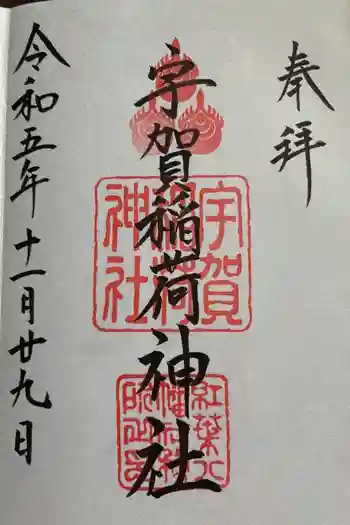 奉拝
宇賀稲荷神社
宇賀
稲荷
神社
令和五年十一月廿九日